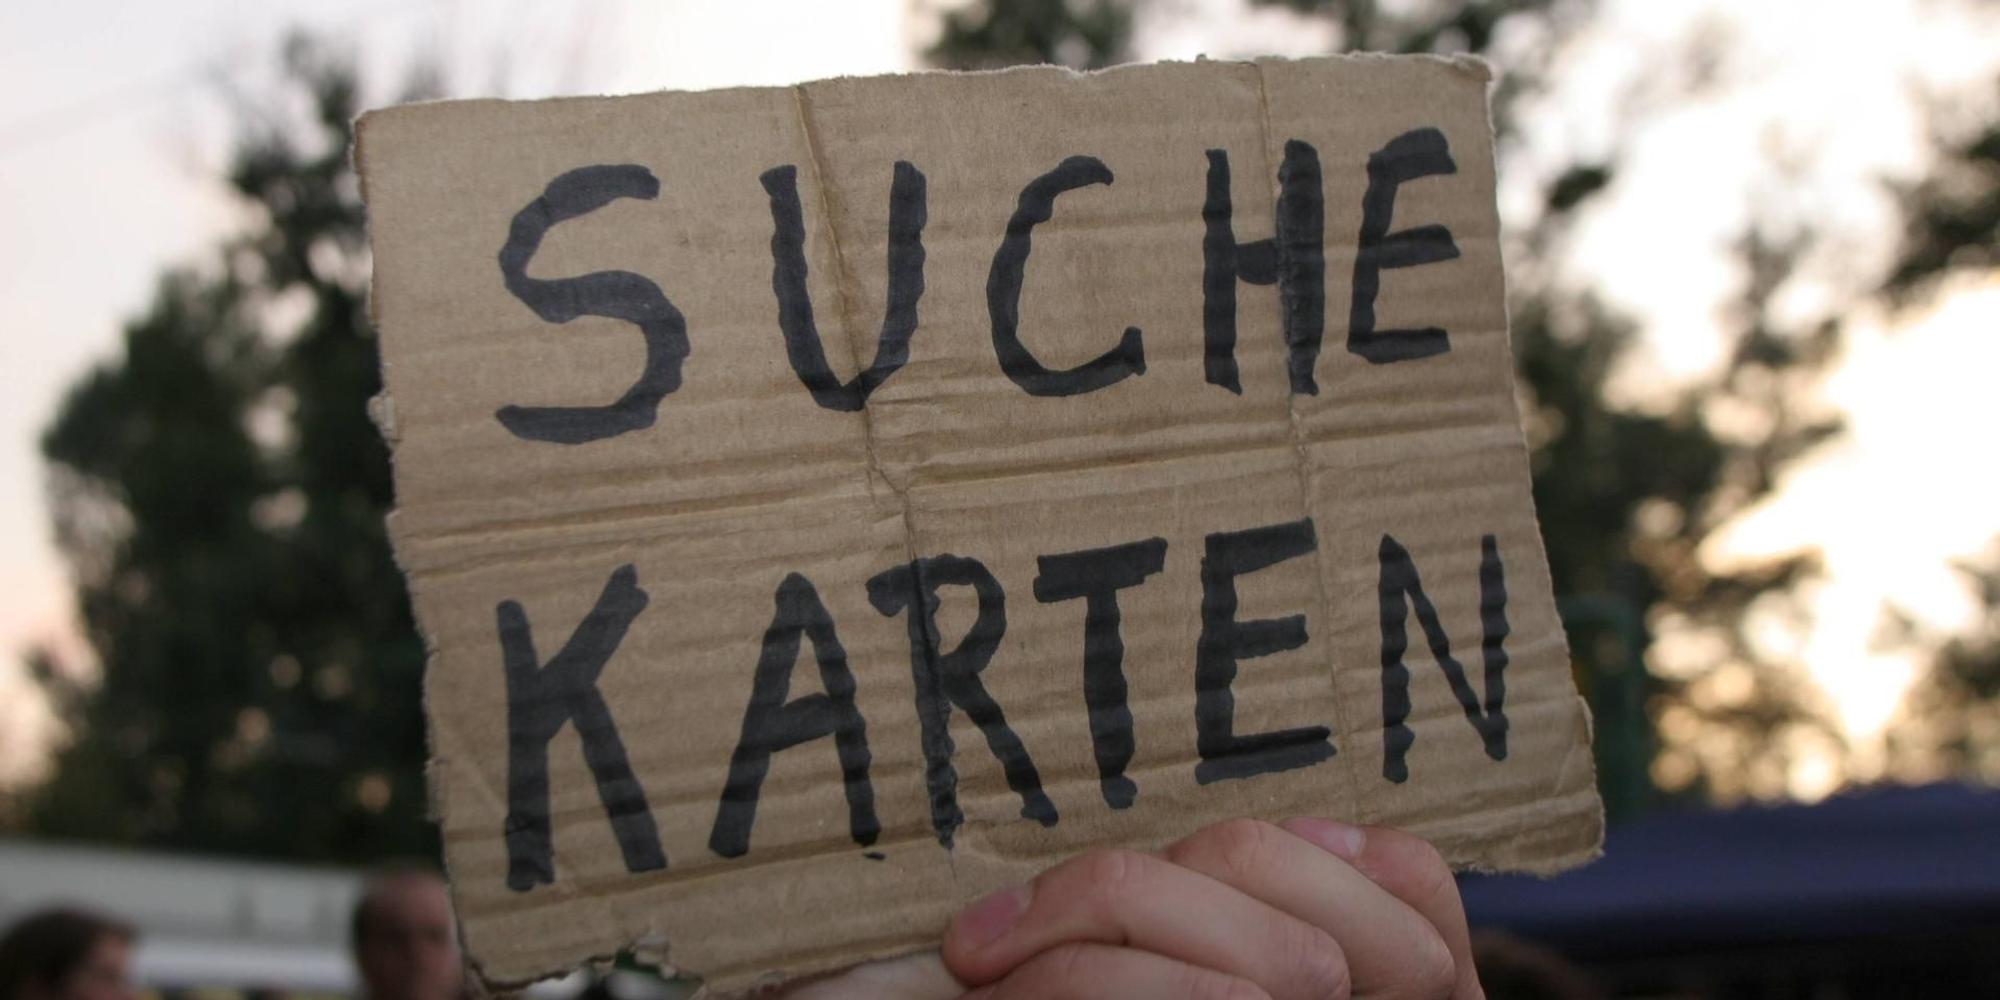 SUCHE
KARTEN